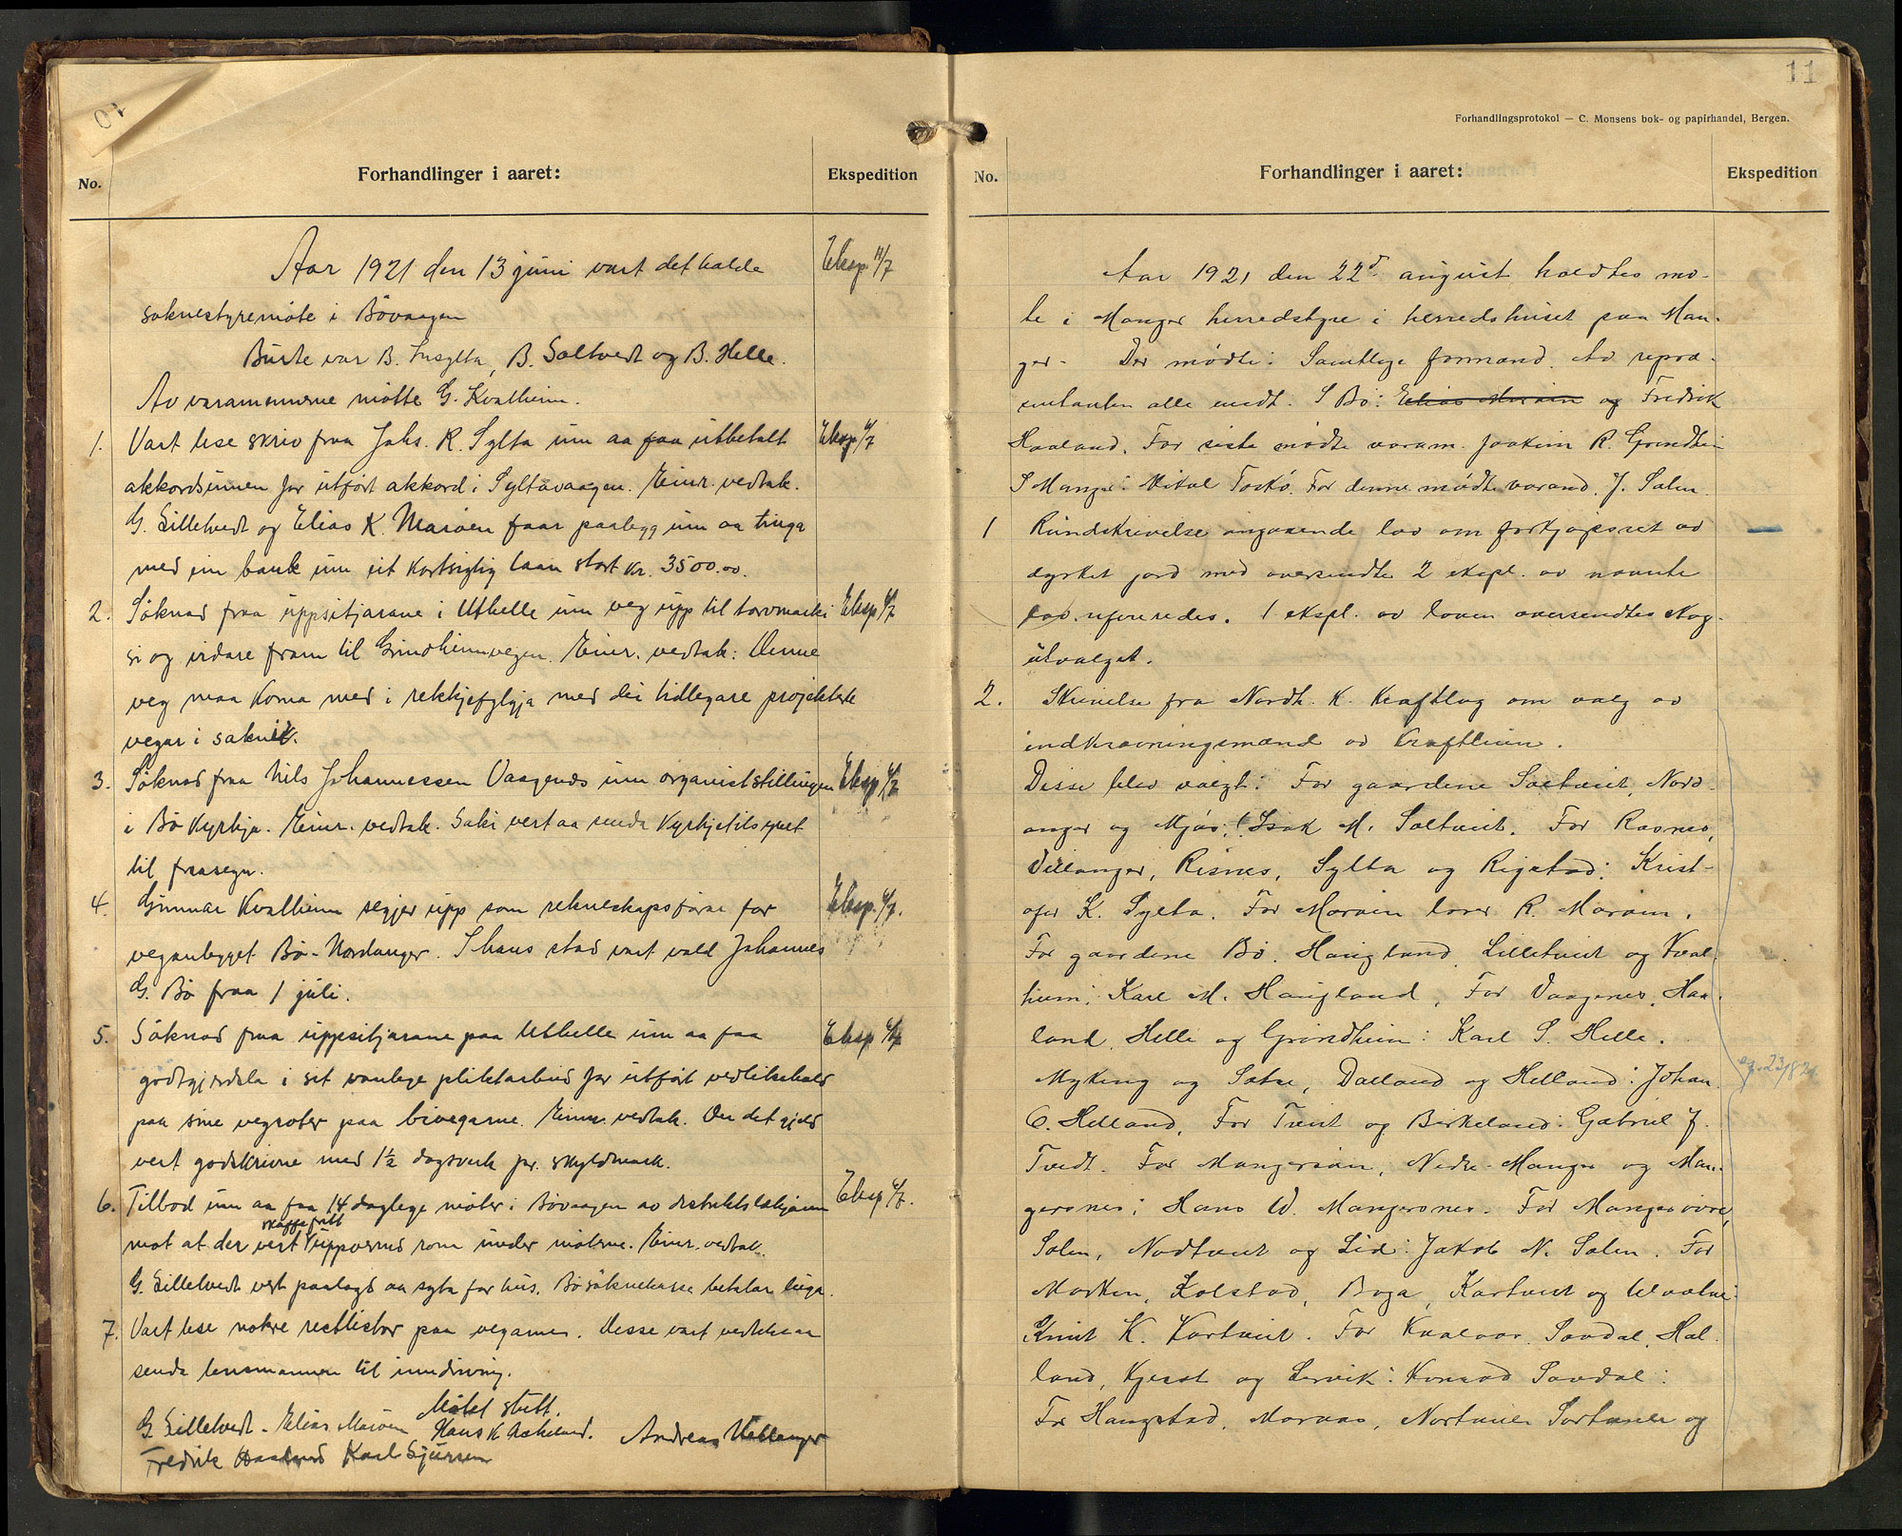 10
No.
Forhandlinger i aaret:
Ekspedition
Aar 1921 den 13 juni vart det halde
Eksp 11/7
soknestyremöte i Bövaagen
Burte var B. Insylta, B. Soltvedt og B. Helle.
Av varamennerne mötte G. Kvalheim.
1. Vart lese skriv fraa Johs. R. Sylta um aa faa utbetalt
Eksp 4/7
akkordsumen for utfört akkord i Syltavaagen. Einr. vedtak.
G. Lilletvedt og Elias K. Maröen faar paalegg um aa tinga
med ein bank um eit kortsigtig laan stort kr. 3500.00.
2. Söknad fraa uppsitjarane i Uthelle um veg upp til torvmarki
Eksp 4/7
si og vidare fram til Grindheimvegen. Einr. vedtak: Denne
veg maa koma med i rekkjefylgja med dei tidlegare projekterte
vegar i sokni.
3. Söknad fraa Nils Johannessen Vaagenes um organiststillingen
Eksp 4/7
i Bö Kyrkja. Einr. vedtak. Saki vert aa senda Kyrkjetilsynet
til fraasegn.
4. Gunnar Kvalheim segjer upp som rekneskapsförar for
Eksp. 4/7.
veganlegget Bö - Nordanger. I hans stad vart vald Johannes
G. Bö fraa 1 juli.
5. Söknad fraa uppsitjarane paa Uthelle um aa faa
Eksp 4/7
godtgjerdsla i sit vanlege pliktarbeid for utfört vedlikehald
paa sine vegroter paa bivegarne. Einr. vedtak. Du det gjeld
vert godskrivne med 1½ dagsverk pr. skyldmark.
6. Tilbod um aa faa 14 daglege möter i Bövaagen av distriktslækjaren
Eksp 4/7.
skaffa fritt
mot at der vert uppvarmd rom under möterne. Einr. vedtak.
G. Lilletvedt vert paalagt aa syta for hus. Bö soknekasse betalar leiga.
7. Vart lese nokre restlistor paa vegarne. Desse vart vedteke aa
senda lensmannen til inndriving.
Mötet slutt.
G. Lilletvedt - Elias Maröen Hans K Askeland. Andreas Vetlanger
Fredrik Haaland Karl Sjursen
11
Forhandlingsprotokol — C. Monsens bok- og papirhandel, Bergen.
No.
Forhandlinger i aaret:
Ekspedition
Aar 1921 den 22d august holdtes mø-
te i Manger herredstyre i herredshuset paa Man-
ger - Der mødte: Samtlige formænd. Av repræ-
sentanten alle undt. I Bö: Elias Maröen og Fredrik
Haaland. For siste mødte varam. Joakim R. Grindhei
I Manger: Mikal Toskö. For denne mødte varamd. J. Solen.
1 Rundskrivelse angaaende lov om forkjøpsret av
dyrket jord med oversendte 2 ekspl. av nævnte
lov refereredes. 1 ekspl. av loven oversendtes skog-
utvalget.
2. Skrivelse fra Nordh. K. Kraftlag om valg av
indkrævningsmænd av kraftleien.
Disse blev valgt: For gaardene Soltveit, Nord-
anger og Mjös: Isak M. Soltveit. For Rosnes,
Vetlanger, Risnes, Sylta og Rigstad: Krist-
ofer K. Sylta. For Maröen Lars R. Maröen.
For gaardene Bö, Haugland, Lilletveit og Kval-
heim: Karl M. Haugland, For Vaagenes, Haa-
land, Helle og Grindheim: Karl S. Helle.
Myking og Sætre, Dalland og Helland: Johan
eg. 23/8 21
C. Helland, For Tveit og Birkeland: Gabriel J.
Tvedt. For Mangersöen, Nedre-Manger og Man-
gersnes: Hans W. Mangersnes. For Manger övre,
Solen, Nodtveit og Lid: Jakob N. Solen. For
Marken, Kolstad, Boga, Kartveit og Uvatne:
Knut K. Kartveit. For Kvalvaag, Sævdal, Hal-
land, Hjelst og Lervik: Konrad Sævdal:
For Haugstad, Morvaas, Nortveit Sortveit og